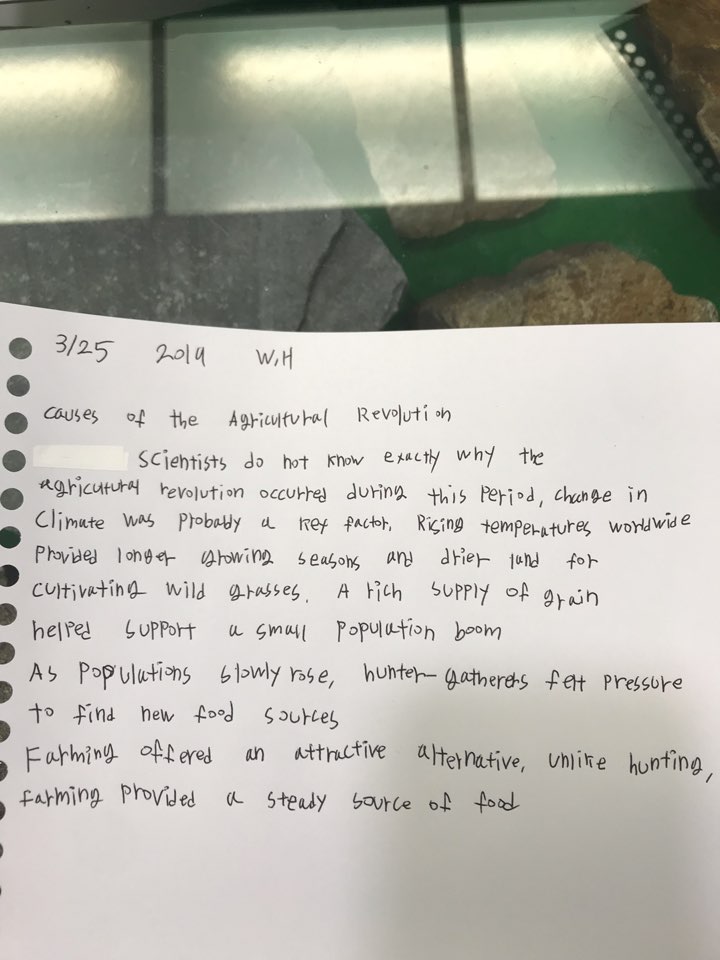 3/25 2019 W.H
Causes of the Agricultural Revolution
Scientists do not know exactly why the
agricutural revolution occurred during this period, change in
Climate was probably a key factor. Rising temperatures worldwide
Provided longer growing seasons and drier land for
cultivating wild grasses. A rich supply of grain
helped support a small population boom
As populations slowly rose, hunter-gatherers felt pressure
to find new food sources
Farming offered an attractive alternative, unlike hunting,
farming provided a steady source of food